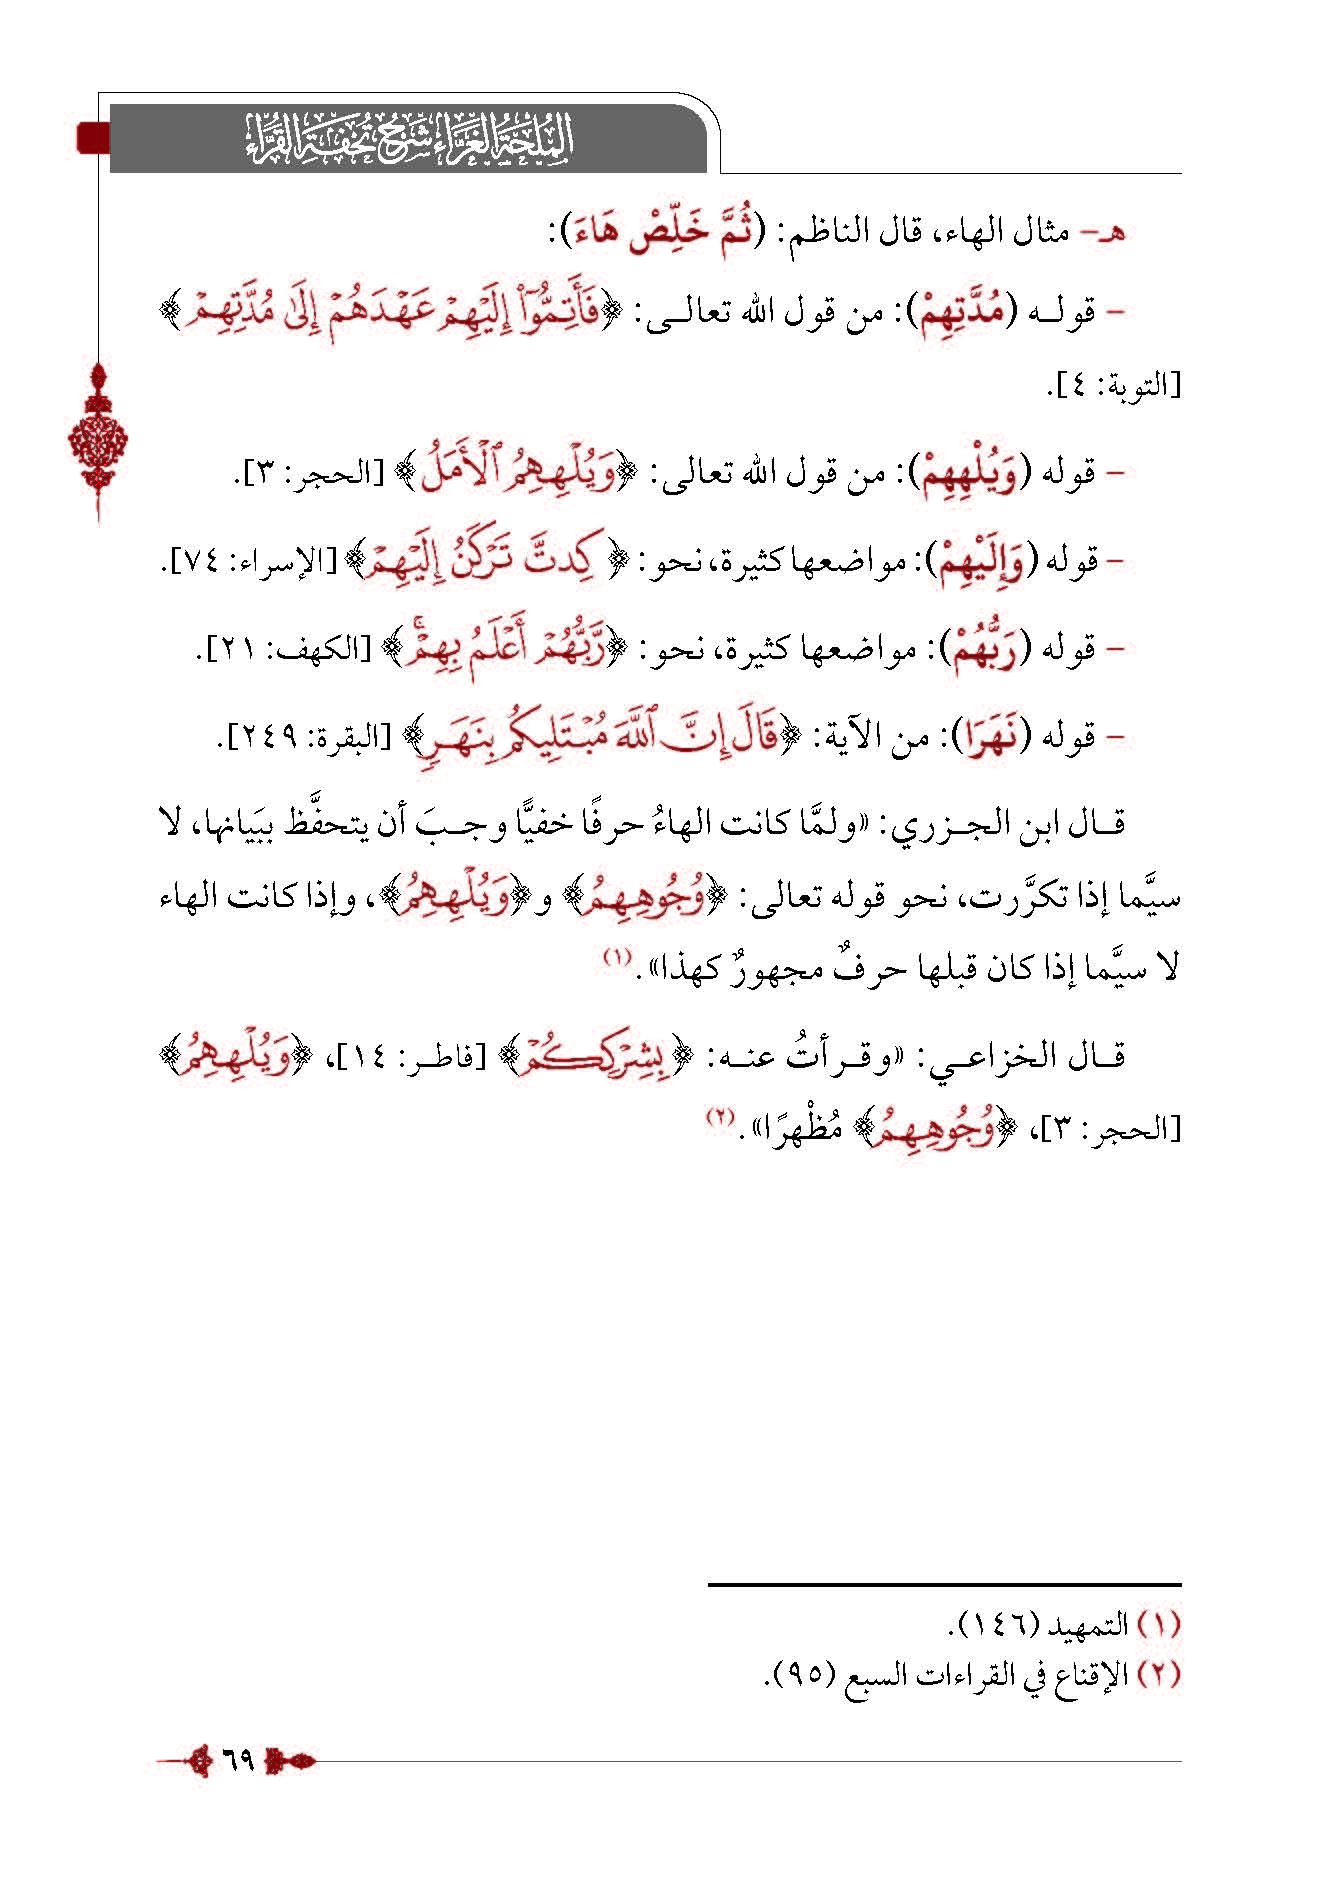 المُلْحَةُ الغَرَّاءُ شَرْحُ تُحْفَةِ القُرَّاءِ
هـ- مثال الهاء، قال الناظم: (ثُمَّ خَلِّصْ هَاءَ):
- قولـه (مُدَّتِهِمْ): من قول الله تعالـى: ﴿فَأَتِمُّوٓا۟ إِلَيْهِمْ عَهْدَهُمْ إِلَىٰ مُدَّتِهِمْ﴾
[التوبة: ٤].
- قوله (وَيُلْهِهِمْ): من قول الله تعالى: ﴿وَيُلْهِهِمُ ٱلْأَمَلُ﴾ [الحجر: ٣].
- قوله (وَإِلَيْهِمْ): مواضعها كثيرة، نحو: ﴿كِدتَّ تَرْكَنُ إِلَيْهِمْ﴾ [الإسراء: ٧٤].
- قوله (رَبُّهُمْ): مواضعها كثيرة، نحو: ﴿رَّبُّهُمْ أَعْلَمُ بِهِمْۚ﴾ [الكهف: ٢١].
- قوله (نَهَرَا): من الآية: ﴿قَالَ إِنَّ ٱللَّهَ مُبْتَلِيكُم بِنَهَرٍ﴾ [البقرة: ٢٤٩].
قـال ابن الجـزري: «ولمَّا كانت الهاءُ حرفًا خفيًّا وجـبَ أن يتحفَّظ ببَيانها، لا
سيَّما إذا تكرَّرت، نحو قوله تعالى: ﴿وُجُوهِهِمُ﴾ و﴿وَيُلْهِهِمُ﴾، وإذا كانت الهاء
لا سيَّما إذا كان قبلها حرفٌ مجهورٌ كهذا». (١)
قـال الخزاعـي: «وقـرأتُ عنـه: ﴿بِشِرْكِكُمْ﴾ [فاطـر: ١٤]، ﴿وَيُلْهِهِمُ﴾
[الحجر: ٣]، ﴿وُجُوهِهِمُ﴾ مُظْهرًا». (٢)
(١) التمهيد (١٤٦).
(٢) الإقناع في القراءات السبع (٩٥).
٦٩